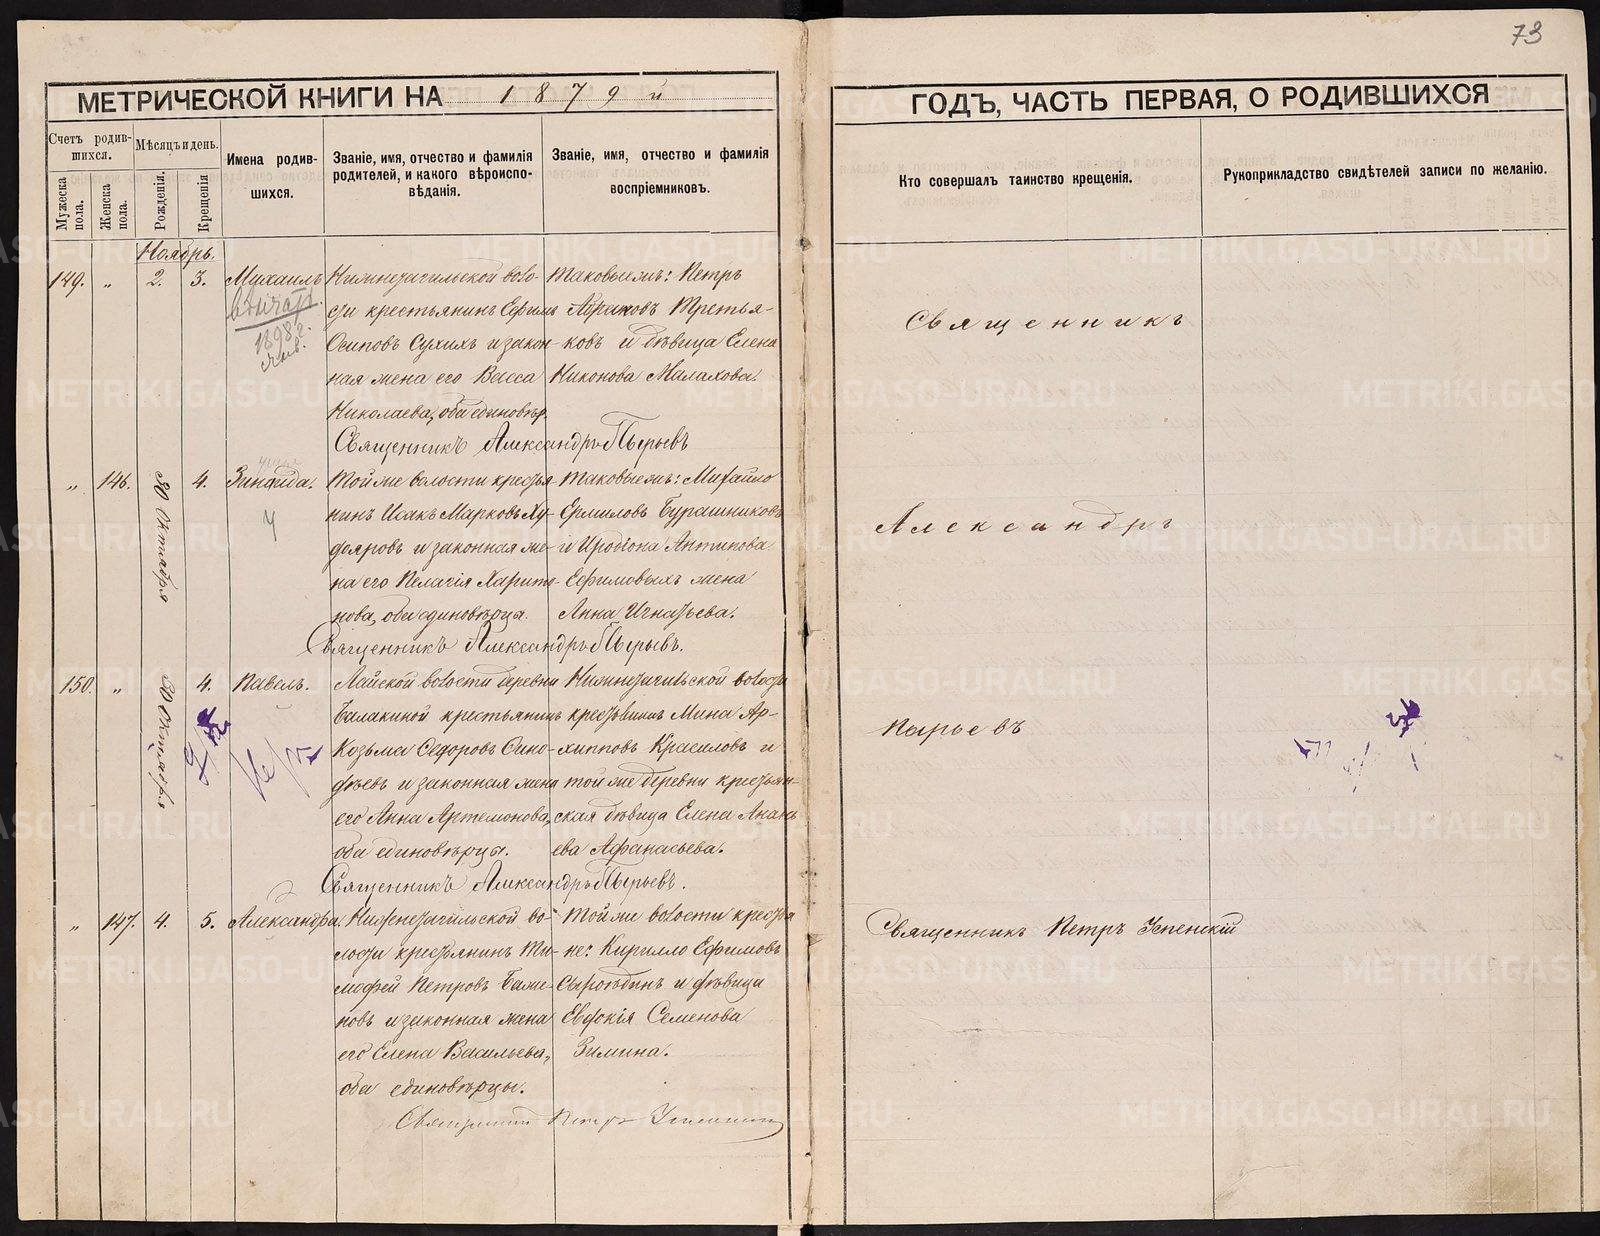 73
МЕТРИЧЕСКОЙ КНИГИ НА 1879 й
ГОДЪ, ЧАСТЬ ПЕРВАЯ, О РОДИВШИХСЯ
Счетъ родив-
шихся.
Мѣсяцъ и день.
Мужеска пола.
Женска пола.
Рожденія.
Крещенія
Имена родив-
шихся.
Званіе, имя, отчество и фамилія
родителей, и какого вѣроиспо-
вѣданія.
Званіе, имя, отчество и фамилія
воспріемниковъ.
Кто совершалъ таинство крещенія.
Рукоприкладство свидѣтелей записи по желанію.
Ноябрь.
149. „ 2. 3. Михаилъ
вѣнчан.
1898 г.
янв.
Нижнетагильской воло-
сти крестьянинъ Ефимъ
Осиповъ Сухихъ и закон-
ная жена его Васса
Николаева, оба единовѣр.
Таковыежъ: Петръ
Абрамовъ Третья-
ковъ и дѣвица Елена
Никонова Малахова.
Священникъ Александръ Пырьевъ
Священникъ
„ 146. 30 Октября 4. Зинаида.
Той же волости крестья-
нинъ Исакъ Марковъ Ху-
дояровъ и законная же-
на его Пелагія Харито-
нова, оба единовѣрца.
Таковыежъ: Михайло
Ермиловъ Бурашниковъ
и Иродіона Антипова
Ефимовыхъ жена
Анна Игнатьева.
Священникъ Александръ Пырьевъ.
Александръ
150. „ 30 Октября 4. Павелъ.
Лайской волости деревни
Балакиной крестьянинъ
Козьма Федоровъ Сино-
фѣевъ и законная жена
его Анна Артемонова,
оба единовѣрцы.
Нижнетагильской волости
крестьянинъ Мина Ар-
хипповъ Красиловъ и
той же деревни крестьян-
ская дѣвица Елена Анань-
ева Афанасьева.
Священникъ Александръ Пырьевъ.
Пырьевъ
„ 147. 4. 5. Александра
Нижнетагильской во-
лости крестьянинъ Ти-
мофей Петровъ Баже-
новъ и законная жена
его Елена Васильева,
оба единовѣрцы.
Той же волости крестья
не: Кирилло Ефимовъ
Сыроѣдинъ и дѣвица
Евдокія Семенова
Зимина.
Священникъ Петръ Успенскій
Священникъ Петръ Успенскій
METRIKI.GASO-URAL.RU